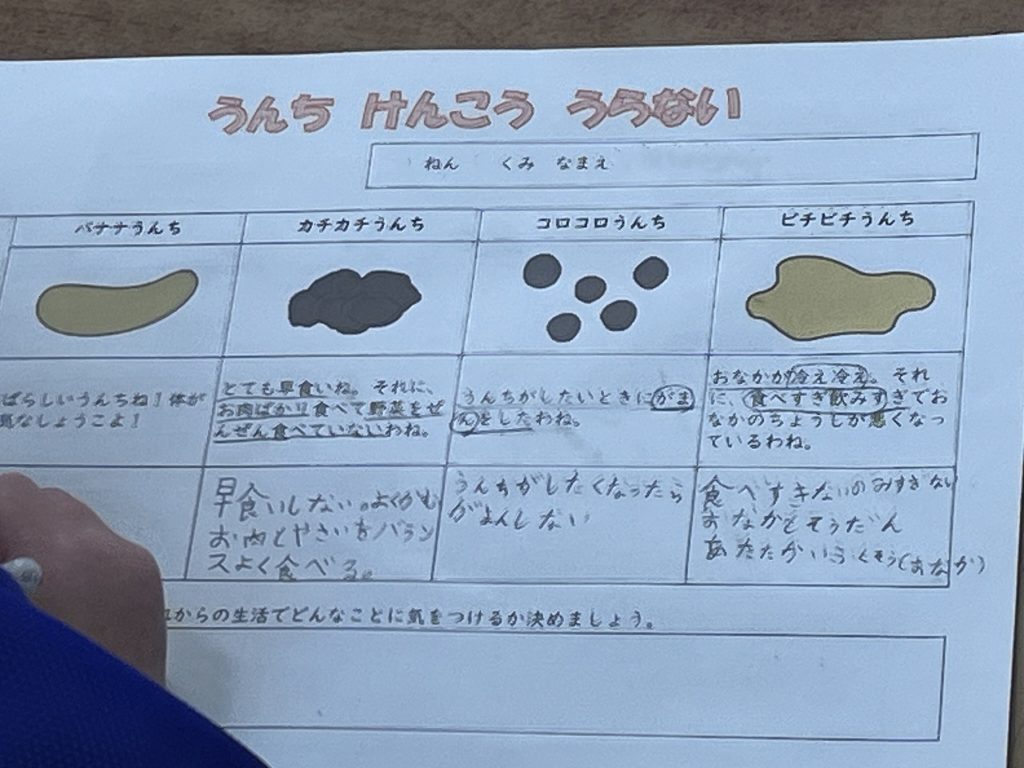 うんち けんこう うらない
ねん くみ なまえ
バナナうんち
カチカチうんち
コロコロうんち
ピチピチうんち
ばらしいうんちね！体が
気なしょうこよ！
とても早食いね。それに、
お肉ばかり食べて野菜をぜ
んぜん食べていないわね。
うんちがしたいときにがま
んをしたわね。
おなかが冷え冷え。それ
に、食べすぎ飲みすぎでお
なかのちょうしが悪くなっ
ているわね。
早食いしない。よくかむ
お肉とやさいをバラン
スよく食べる。
うんちがしたくなったら
がまんしない
食べすぎないのみすぎない
おなかとそうだん
あたたかいふくそう(おなか)
れからの生活でどんなことに気をつけるか決めましょう。